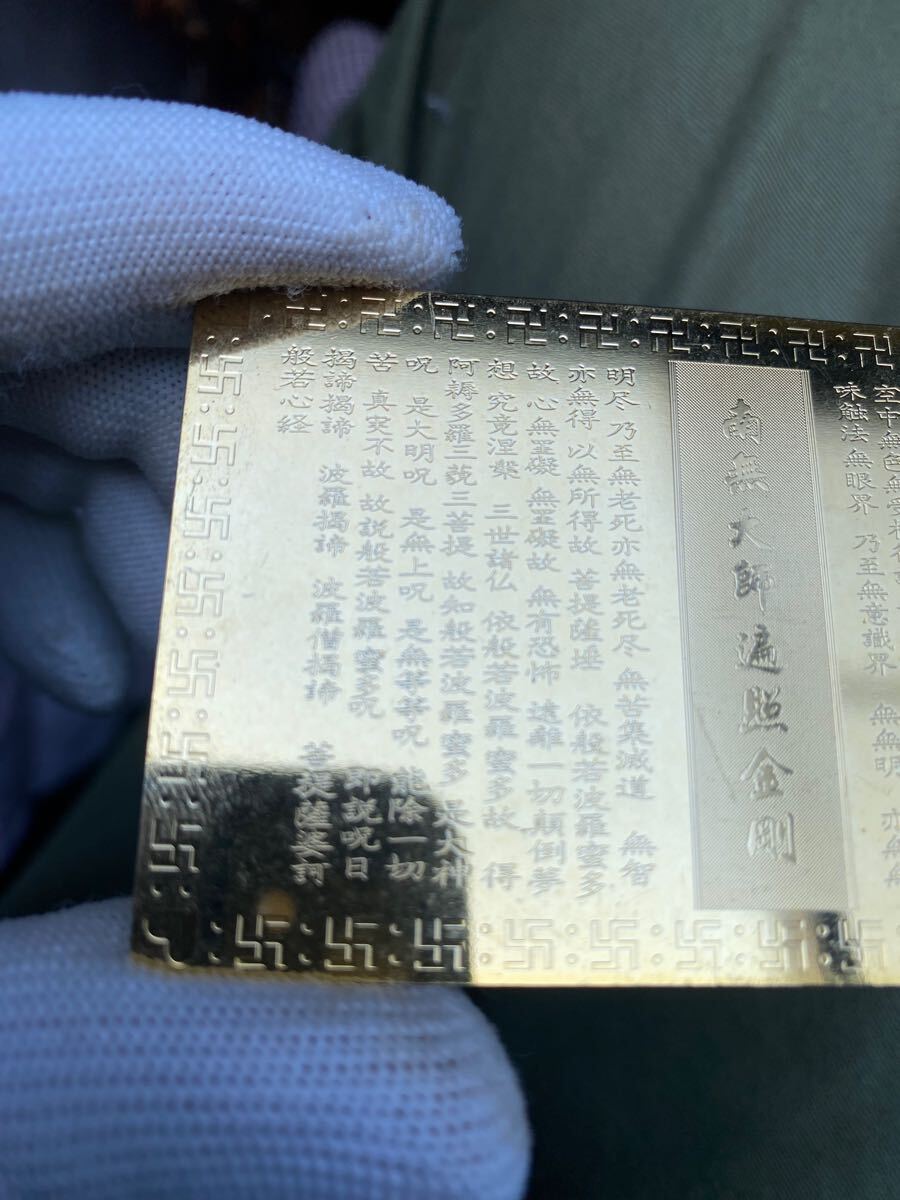 空中無色無受
味触法 無眼界 乃至無意識界 無無明 亦無無
南無大師遍照金剛
明尽 乃至無老死亦無老死尽 無苦集滅道 無智
亦無得 以無所得故 菩提薩埵 依般若波羅蜜多
故 心無罣礙 無罣礙故 無有恐怖 遠離一切顛倒夢
想 究竟涅槃 三世諸仏 依般若波羅蜜多故 得
阿耨多羅三藐三菩提 故知般若波羅蜜多 是大神
呪 是大明呪 是無上呪 是無等等呪 能除一切
苦 真実不故 故説般若波羅蜜多呪 即説呪日
揭諦揭諦 波羅揭諦 波羅僧揭諦 菩提薩婆訶
般若心経